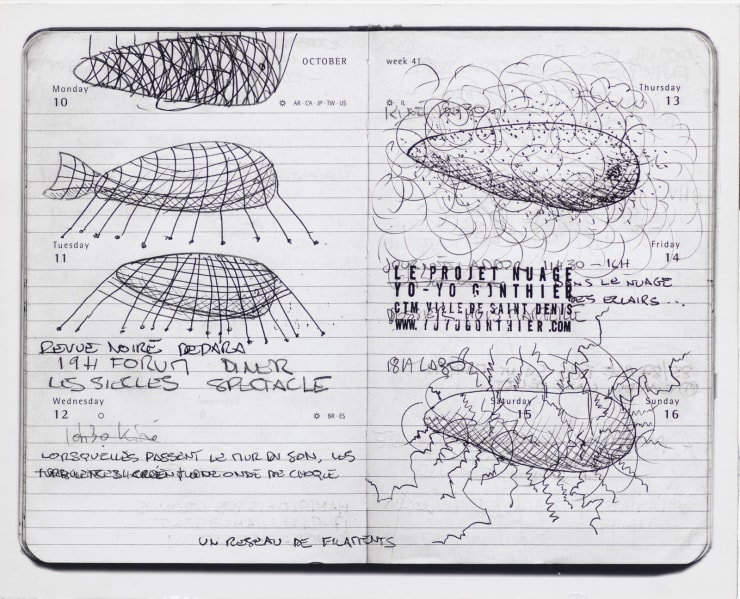 OCTOBER
Monday
10
AR - CA - JP - TW - US
Tuesday
11
REVUE NOIRE
19H FORUM DINER
LES SIECLES SPECTACLE
Wednesday
12
BR - ES
LORSQU'ELLES PASSENT LE MUR DU SON, LES
ONDE DE CHOQUE
UN RESEAU DE FILAMENTS
week 41
Thursday
13
IL
Friday
14
11H30 - 16H
DANS LE NUAGE
DES ECLAIRS...
LE PROJET NUAGE
YO-YO GONTHIER
CTM VILLE DE SAINT DENIS
WWW.YOYOGONTHIER.COM
18H LABO
Saturday
15
Sunday
16